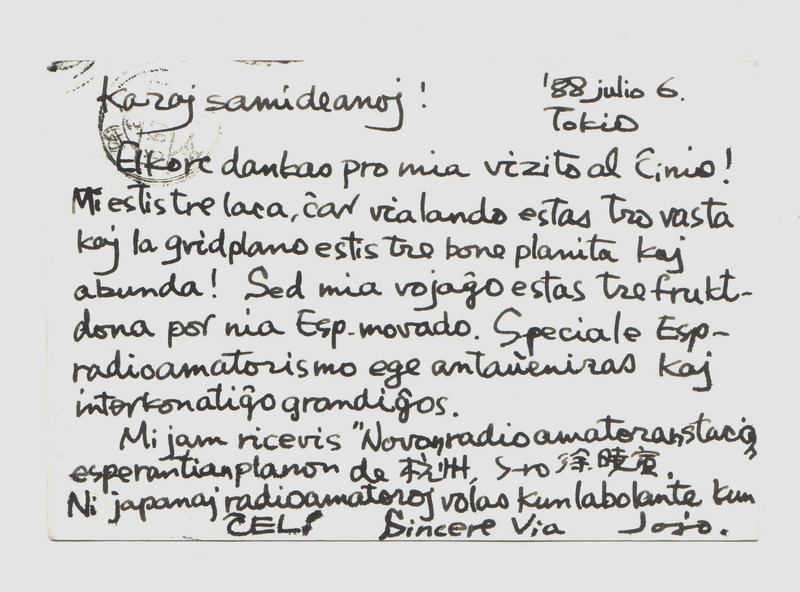 Karaj samideanoj!
'88 julio 6.
Tokio
Elkore dankao pro mia vizito al Ĉinio!
Mi estis tre laca, ĉar via lando estas tro vasta
kaj la gvidplano estis tre bone planita kaj
abunda! Sed mia vojaĝo estas tre frukt-
dona por nia Esp-movado. Speciale Esp-
radioamatorismo ege antaŭeniras kaj
interkonatiĝo grandiĝos.
Mi jam ricevis "Novan radioamatoran stacio
esperantian planon de 杭州, S-ro 徐暁寅.
Ni japanaj radioamatoroj volas kunlabolante kun
ĈELI Sincere Via Jojo.